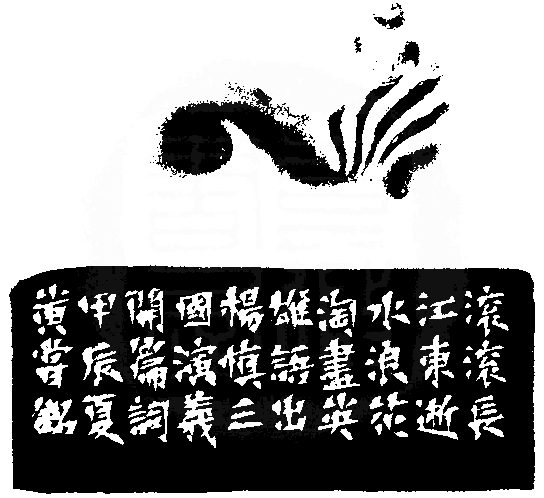 滾滾長
江東逝
水浪花
淘盡英
雄語出
楊慎三
國演義
開篇詞
甲辰夏
黃